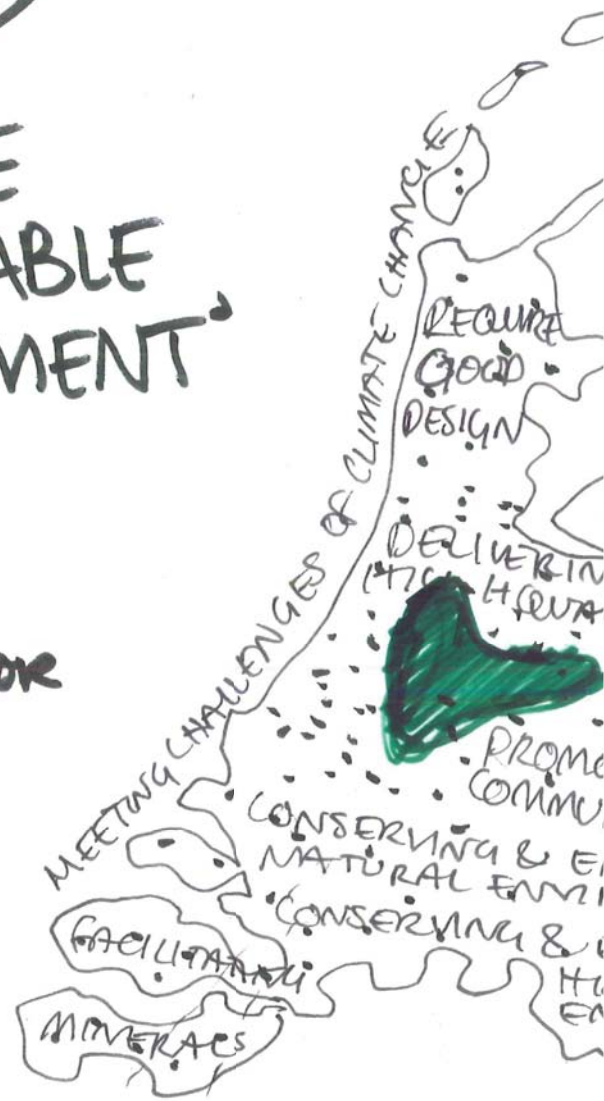 ABLE
MENT
MEETING CHALLENGES OF CLIMATE CHANGE
REQUIRE
GOOD
DESIGN
DELIVERIN
PROMO
COMMU
CONSERVING & E
NATURAL ENVI
CONSERVING &
FACILITATING
MINERALS
H
EN